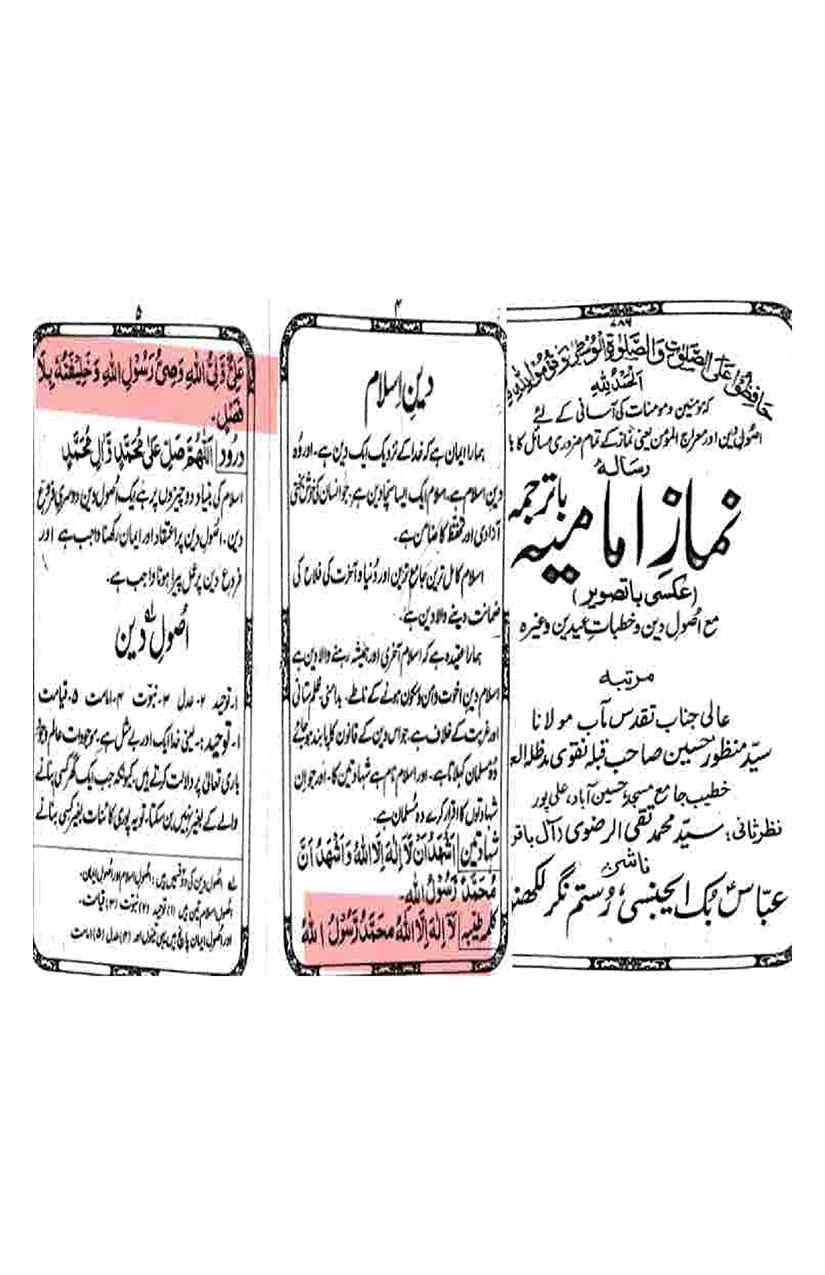 ۷۸۶
حَافِظُوْا عَلَی الصَّلَوٰتِ وَالصَّلٰوةِ الْوُسْطٰی وَقُوْمُوْا لِلّٰهِ
الحمد للہ
کہ مومنین و مومنات کی آسانی کے لئے
اصول دین اور معراج المؤمن یعنی نماز کے تمام ضروری مسائل کا
رسالہ
نمازِ امامیہ باترجمہ
(عکسی باتصویر)
مع اُصول دین وخطبات عیدین وغیرہ
مرتبہ
عالی جناب تقدس مآب مولانا
سیّد منظور حسین صاحب قبلہ نقوی مدظلہ
خطیب جامع مسجد، حسین آباد، علی پور
نظر ثانی: سیّد محمد تقی الرضوی (آل باقر
ناشر
عبّاس بُک ایجنسی، رُستم نگر لکھنؤ
۴
دینِ اسلام
ہمارا ایمان ہے کہ خدا کے نزدیک ایک دین ہے۔ اور وُہ
دین اسلام ہے۔ اسلام ایک ایسا سچا دین ہے۔ جو انسان کی خوش بختی
آزادی اور تحفظ کا ضامن ہے۔
اسلام کامل ترین جامع ترین اور دُنیا و آخرت کی فلاح کی
ضمانت دینے والا دین ہے۔
ہمارا عقیدہ ہے کہ اسلام آخری اور ہمیشہ رہنے والا دین ہے
اسلام دین اخوت وامن وسکون ہونے کے ناطے۔ بدامنی، ظلم ستانی
اور غربت کے خلاف ہے۔ جو اس دین کے قانون کا پابند ہو جائے
وُہ مسلمان کہلاتا ہے۔ اور اسلام نام ہے شہادتین کا۔ اور جو ان
شہادتوں کا اقرار کرے وہ مُسلمان ہے۔
شہادتین اَشْهَدُ اَنْ لَّا اِلٰهَ اِلَّا اللهُ وَ اَشْهَدُ اَنَّ
مُحَمَّدً رَّسُوْلُ اللهِ۔
کلمہ طیبہ لَآ اِلٰهَ اِلَّا اللهُ مُحَمَّدٌ رَّسُوْلُ اللهِ
۵
عَلِیٌّ وَّلِیُّ اللهِ وَصِیُّ رَسُوْلِ اللهِ وَ خَلِیْفَتُهٗ بِلَا
فَصْلٍ۔
درود اَللّٰهُمَّ صَلِّ عَلٰی مُحَمَّدٍ وَّاٰلِ مُحَمَّدٍ
اسلام کی بنیاد دو چیزوں پر ہے ایک اُصول دین دوسری فروع
دین۔ اُصول دین پر اعتقاد اور ایمان رکھنا واجب ہے اور
فروع دین پر عمل پیرا ہونا واجب ہے۔
اُصولِ دین
۱۔ توحید ۲۔ عدل ۳۔ نبوّت ۴۔ امامت ۵۔ قیامت
۱۔ توحید:۔ یعنی خدا ایک اور بے مثل ہے۔ موجودات عالم وجودِ
باری تعالیٰ پر دلالت کرتے ہیں۔ کیونکہ جب ایک گھر کسی بنانے
والے کے بغیر نہیں بن سکتا۔ تو یہ پوری کائنات بغیر کسی بنانے
لے اُصول دین کی دو قسمیں ہیں: اُصول اسلام اور اُصول ایمان۔
اُصول اسلام تین ہیں (۱) توحید (۲) نبوّت (۳) قیامت۔
اور اُصول ایمان پانچ ہیں یہی تینوں اور (۴) عدل (۵) امامت